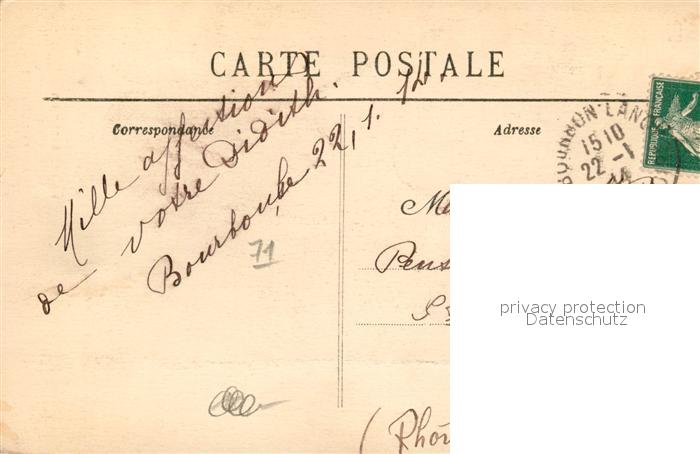 CARTE POSTALE
Correspondance
Adresse
Mille affections
de votre Didith.
Bourbon, 22, 1. 14.
71
BOURBON-LANC
15 10
22 -1
RÉPUBLIQUE FRANÇAISE
Pens
(Rhôn
privacy protection
Datenschutz